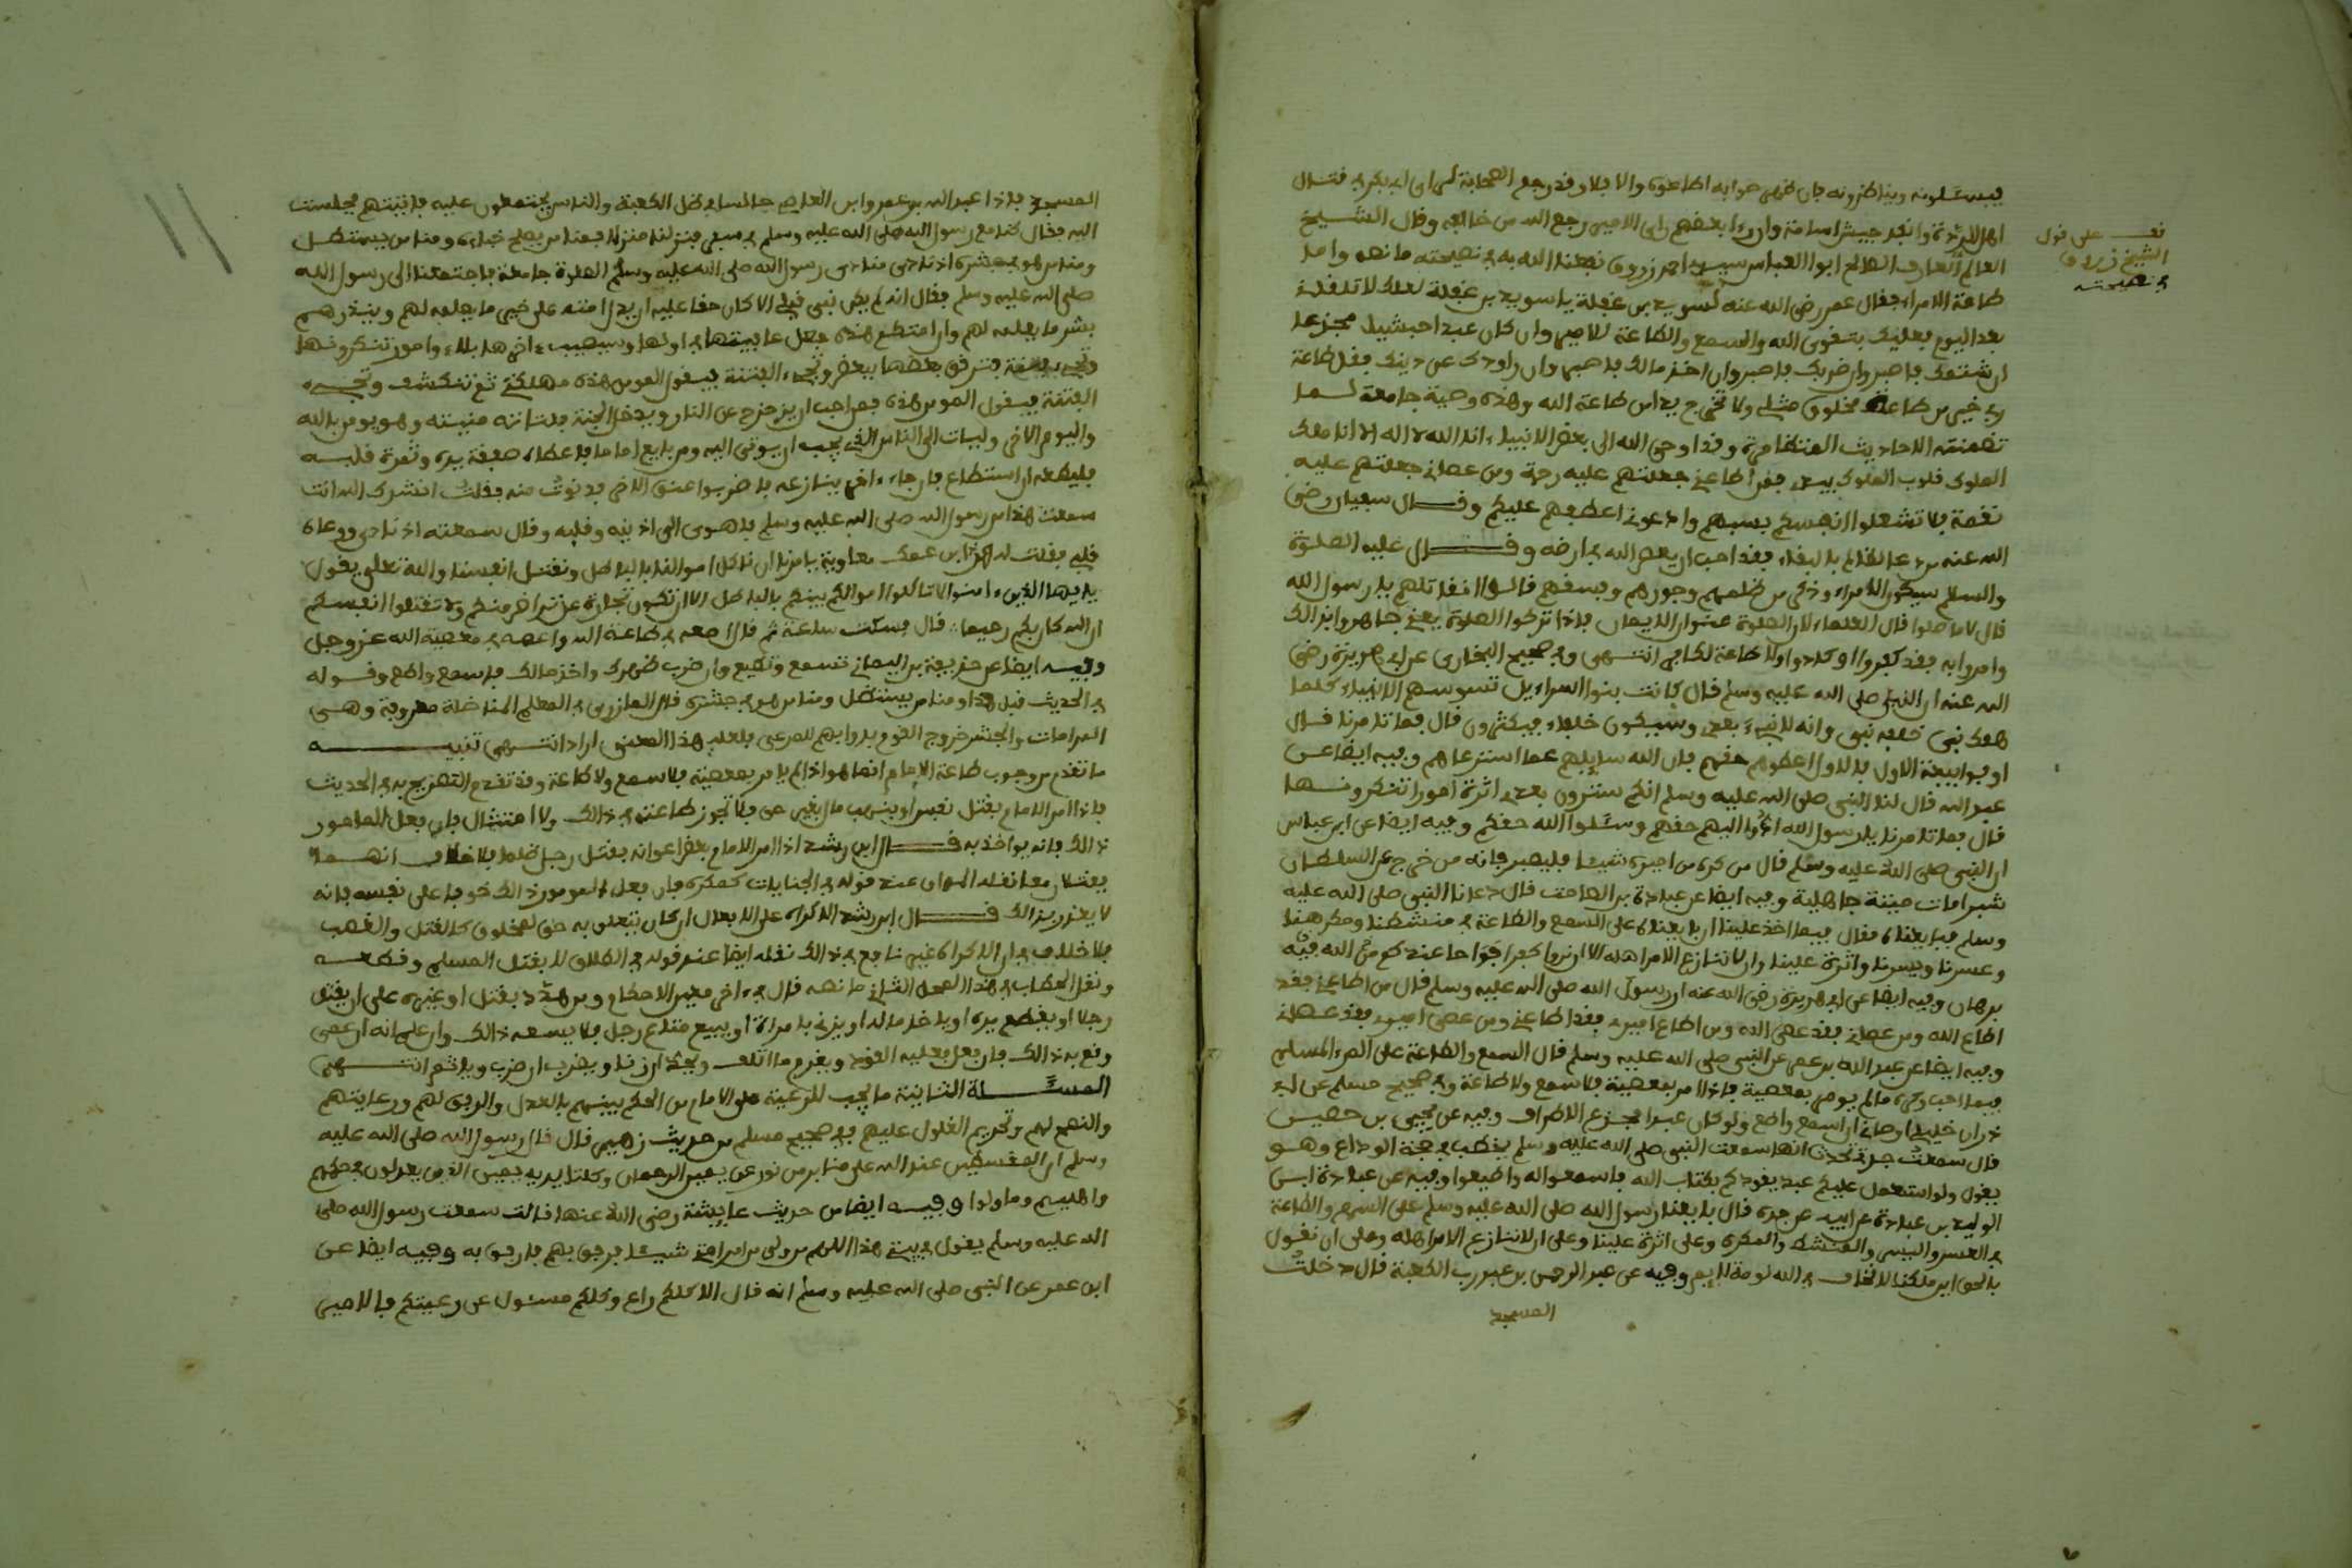 فيسئلونه ويناظرونه فان ظهر صوابه اطاعوه والا فلا وقد رجع الصحابة لراى ابى بكر في قتال
اهل الردة وانفاد جيش اسامة واروا بعضهم راى الامير رجع الله من خالفه وقال الشيخ
العالم العارف الصالح ابوا العباس سيدي احمد زروق نفعنا الله به في نصيحته ما نصه واما
طاعة الامراء فقال عمر رضي الله عنه لسويد بن غفلة يا سويد بن غفلة لعلك لا تلقانى
بعد اليوم فعليك بتقوى الله والسمع والطاعة للامير وان كان عبدا حبشيا مجزعا
ان شتمك فاصبر وان ضربك فاصبر وان اخذ مالك فاصبر وان راودك عن دينك فقل طاعة
ربي خير من طاعة مخلوق مثلي ولا تخرج يدا من طاعة الله وهذه وصية جامعة لما
تضمنته الاحاديث المتظافرة وقد اوحى الله الى بعض الانبياء انا الله لا اله الا انا ملك
الملوك قلوب الملوك بيدي فمن اطاعني جعلتهم عليه رحمة ومن عصاني جعلتهم عليه
نقمة فلا تشغلوا انفسكم بسبهم وادعوني اعطفهم عليكم وقال سفيان رضي
الله عنه من دعا لظالم بالبقاء فقد احب ان يعصى الله في ارضه وقال عليه الصلوة
والسلام سيكون الامراء وذكر من ظلمهم وجورهم وفسقهم قالوا افنقاتلهم يا رسول الله
قال لا ما صلوا قال العلماء لان الصلوة عنوان الايمان فاذا تركوا الصلوة يعني جاهروا بذالك
وامروا به فقد كفروا او كادوا ولا طاعة لكافر انتهى وفي صحيح البخارى عن ابى هريرة رضي
الله عنه ان النبي صلى الله عليه وسلم قال كانت بنوا اسراءيل تسوسهم الانبياء كلما
هلك نبي خلفه نبي وانه لا نبي بعدى وسيكون خلفاء فيكثرون قال فما تامرنا قال
اوفوا ببيعة الاول فالاول اعطوهم حقهم فان الله سايلهم عما استرعاهم وفيه ايضا عن
عبد الله قال لنا النبي صلى الله عليه وسلم انكم سترون بعدى اثرة امورا تنكرونها
قال فما تامرنا يا رسول الله ادوا اليهم حقهم وسئلوا الله حقكم وفيه ايضا عن ابن عباس
ان النبي صلى الله عليه وسلم قال من كره من اميره شيئا فليصبر فانه من خرج عن السلطان
شبرا مات ميتة جاهلية وفيه ايضا عن عبادة بن الصامت قال دعانا النبي صلى الله عليه
وسلم فبايعناه فقال فيما اخذ علينا ان بايعناه على السمع والطاعة في منشطنا ومكرهنا
وعسرنا ويسرنا واثرة علينا وان لا ننازع الامر اهله الا ان تروا كفرا بواحا عندكم من الله فيه
برهان وفيه ايضا عن ابى هريرة رضي الله عنه ان رسول الله صلى الله عليه وسلم قال من اطاعني فقد
اطاع الله ومن عصاني فقد عصى الله ومن اطاع اميرى فقد اطاعني ومن عصى اميرى فقد عصاني
وفيه ايضا عن عبد الله بن عمر عن النبي صلى الله عليه وسلم قال السمع والطاعة على المرء المسلم
فيما احب وكره ما لم يومر بمعصية فاذا امر بمعصية فلا سمع ولا طاعة وفي صحيح مسلم عن ابى
ذر ان خليلي اوصاني ان اسمع واطع ولو كان عبدا مجزع الاطراف وفيه عن يحيى بن حصين
قال سمعت جدتي تحدث انها سمعت النبي صلى الله عليه وسلم يخطب في حجة الوداع وهو
يقول ولو استعمل عليكم عبد يقودكم بكتاب الله فاسمعوا له واطيعوا وفيه عن عبادة ابن
الوليد بن عبادة عن ابيه عن جده قال بايعنا رسول الله صلى الله عليه وسلم على السمع والطاعة
في العسر واليسر والمنشط والمكره وعلى اثرة علينا وعلى ان لا ننازع الامر اهله وعلى ان نقول
بالحق اين ما كنا لا نخاف في الله لومة لايم وفيه عن عبد الرحمن بن عبد رب الكعبة قال دخلت
المسجد
نف على قول
الشيخ زروق
في نصيحته
المسجد فاذا عبد الله بن عمرو ابن العاص جالسا في ظل الكعبة والناس مجتمعون عليه فاتيتهم فجلست
اليه فقال كنا مع رسول الله صلى الله عليه وسلم في سفر فنزلنا منزلا فمنا من يصلح خباءه ومنا من ينتضل
ومنا من هو في جشره اذ نادى منادى رسول الله صلى الله عليه وسلم الصلاة جامعة فاجتمعنا الى رسول الله
صلى الله عليه وسلم فقال انه لم يكن نبي قبلي الا كان حقا عليه ان يدل امته على خير ما يعلمه لهم وينذرهم
بشر ما يعلمه لهم وان امتكم هذه جعل عافيتها في اولها وسيصيب ءاخرها بلاء وامور تنكرونها
وتجيء فتنة فترقق بعضها ببعض وتجيء الفتنة فيقول المومن هذه مهلكتي ثم تنكشف وتجيء
الفتنة فيقول المومن هذه فمن احب ان يزحزح عن النار ويدخل الجنة فلتاته منيته وهو يومن بالله
واليوم الاخر وليات الى الناس الذي يحب ان يوتى اليه ومن بايع اماما فاعطاه صفقة يده وثمرة قلبه
فليطعه ان استطاع فان جاء ءاخر ينازعه فاضربوا عنق الاخر فدنوت منه فقلت انشدك الله انت
سمعت هذا من رسول الله صلى الله عليه وسلم فاهوى الى اذنيه وقلبه وقال سمعته اذناى ووعاه
قلبي فقلت له هذا ابن عمك معاوية يامرنا ان ناكل اموالنا بالباطل ونقتل انفسنا والله تعلى يقول
يايها الذين ءامنوا لا تاكلوا اموالكم بينكم بالباطل الا ان تكون تجارة عن تراض منكم ولا تقتلوا انفسكم
ان الله كان بكم رحيما قال فسكت ساعة ثم قال اطعه في طاعة الله واعصه في معصية الله عز وجل
وفيه ايضا عن حذيفة بن اليمان تسمع وتطيع وان ضرب ظهرك واخذ مالك فاسمع واطع وقوله
في الحديث قبل هذا ومنا من ينتضل ومنا من هو في جشره قال المازري في المعلم المناضلة معروفة وهي
المرامات والجشر خروج القوم بدوابهم للمرعى فلعله هذا المعنى اراد انتهى تنبيه
ما تقدم من وجوب طاعة الامام انما هو اذا لم يامر بمعصية فلا سمع ولا طاعة وقد تقدم التصريح به في الحديث
فاذا امر الامام بقتل نفس او بنهب مال بغير حق فلا تجوز طاعته في ذالك ولا امتثال فان فعل المامور
ذالك فانه يواخذ به قال ابن رشد اذا امر الامام بعض اعوانه بقتل رجل ظلما فلا خلاف انهما
يقتلان معا نقله المواق عند قوله في الجنايات كمكره فان فعل المامور ذالك خوفا على نفسه فانه
لا يعذر بذالك قال ابن رشد الاكراه على الافعال ان كان يتعلق به حق لمخلوق كالقتل والغصب
فلا خلاف في ان الاكراه غير نافع في ذالك نقله ايضا عند قوله في الطلاق لا بقتل المسلم وقطعه
ونقل الحطاب في هذا المحل الثاني ما نصه قال في ءاخر معين الاحكام ومن هدد بقتل او غيره على ان يقتل
رجلا او يقطع يده او ياخذ ماله او يزني بامراة او يبيع متاع رجل فلا يسعه ذالك وان علم انه ان عصى
وقع به ذالك فان فعل فعليه القود ويغرم ما اتلف ويحد ان زنا ويضرب ان ضرب وياثم انتهى
المسئلة الثانية ما يجب للرعية على الامام من الحكم بينهم بالعدل والرفق لهم ورعايتهم
والنصح لهم وتحريم الغلول عليهم ففي صحيح مسلم من حديث زهير قال قال رسول الله صلى الله عليه
وسلم ان المقسطين عند الله على منابر من نور عن يمين الرحمان وكلتا يديه يمين الذين يعدلون في حكمهم
واهليهم وما ولوا وفيه ايضا من حديث عايشة رضي الله عنها قالت سمعت رسول الله صلى
الله عليه وسلم يقول في بيتي هذا اللهم من ولي من امر امتي شيئا فرفق بهم فارفق به وفيه ايضا عن
ابن عمر عن النبي صلى الله عليه وسلم انه قال الا كلكم راع وكلكم مسئول عن رعيتكم فالامير